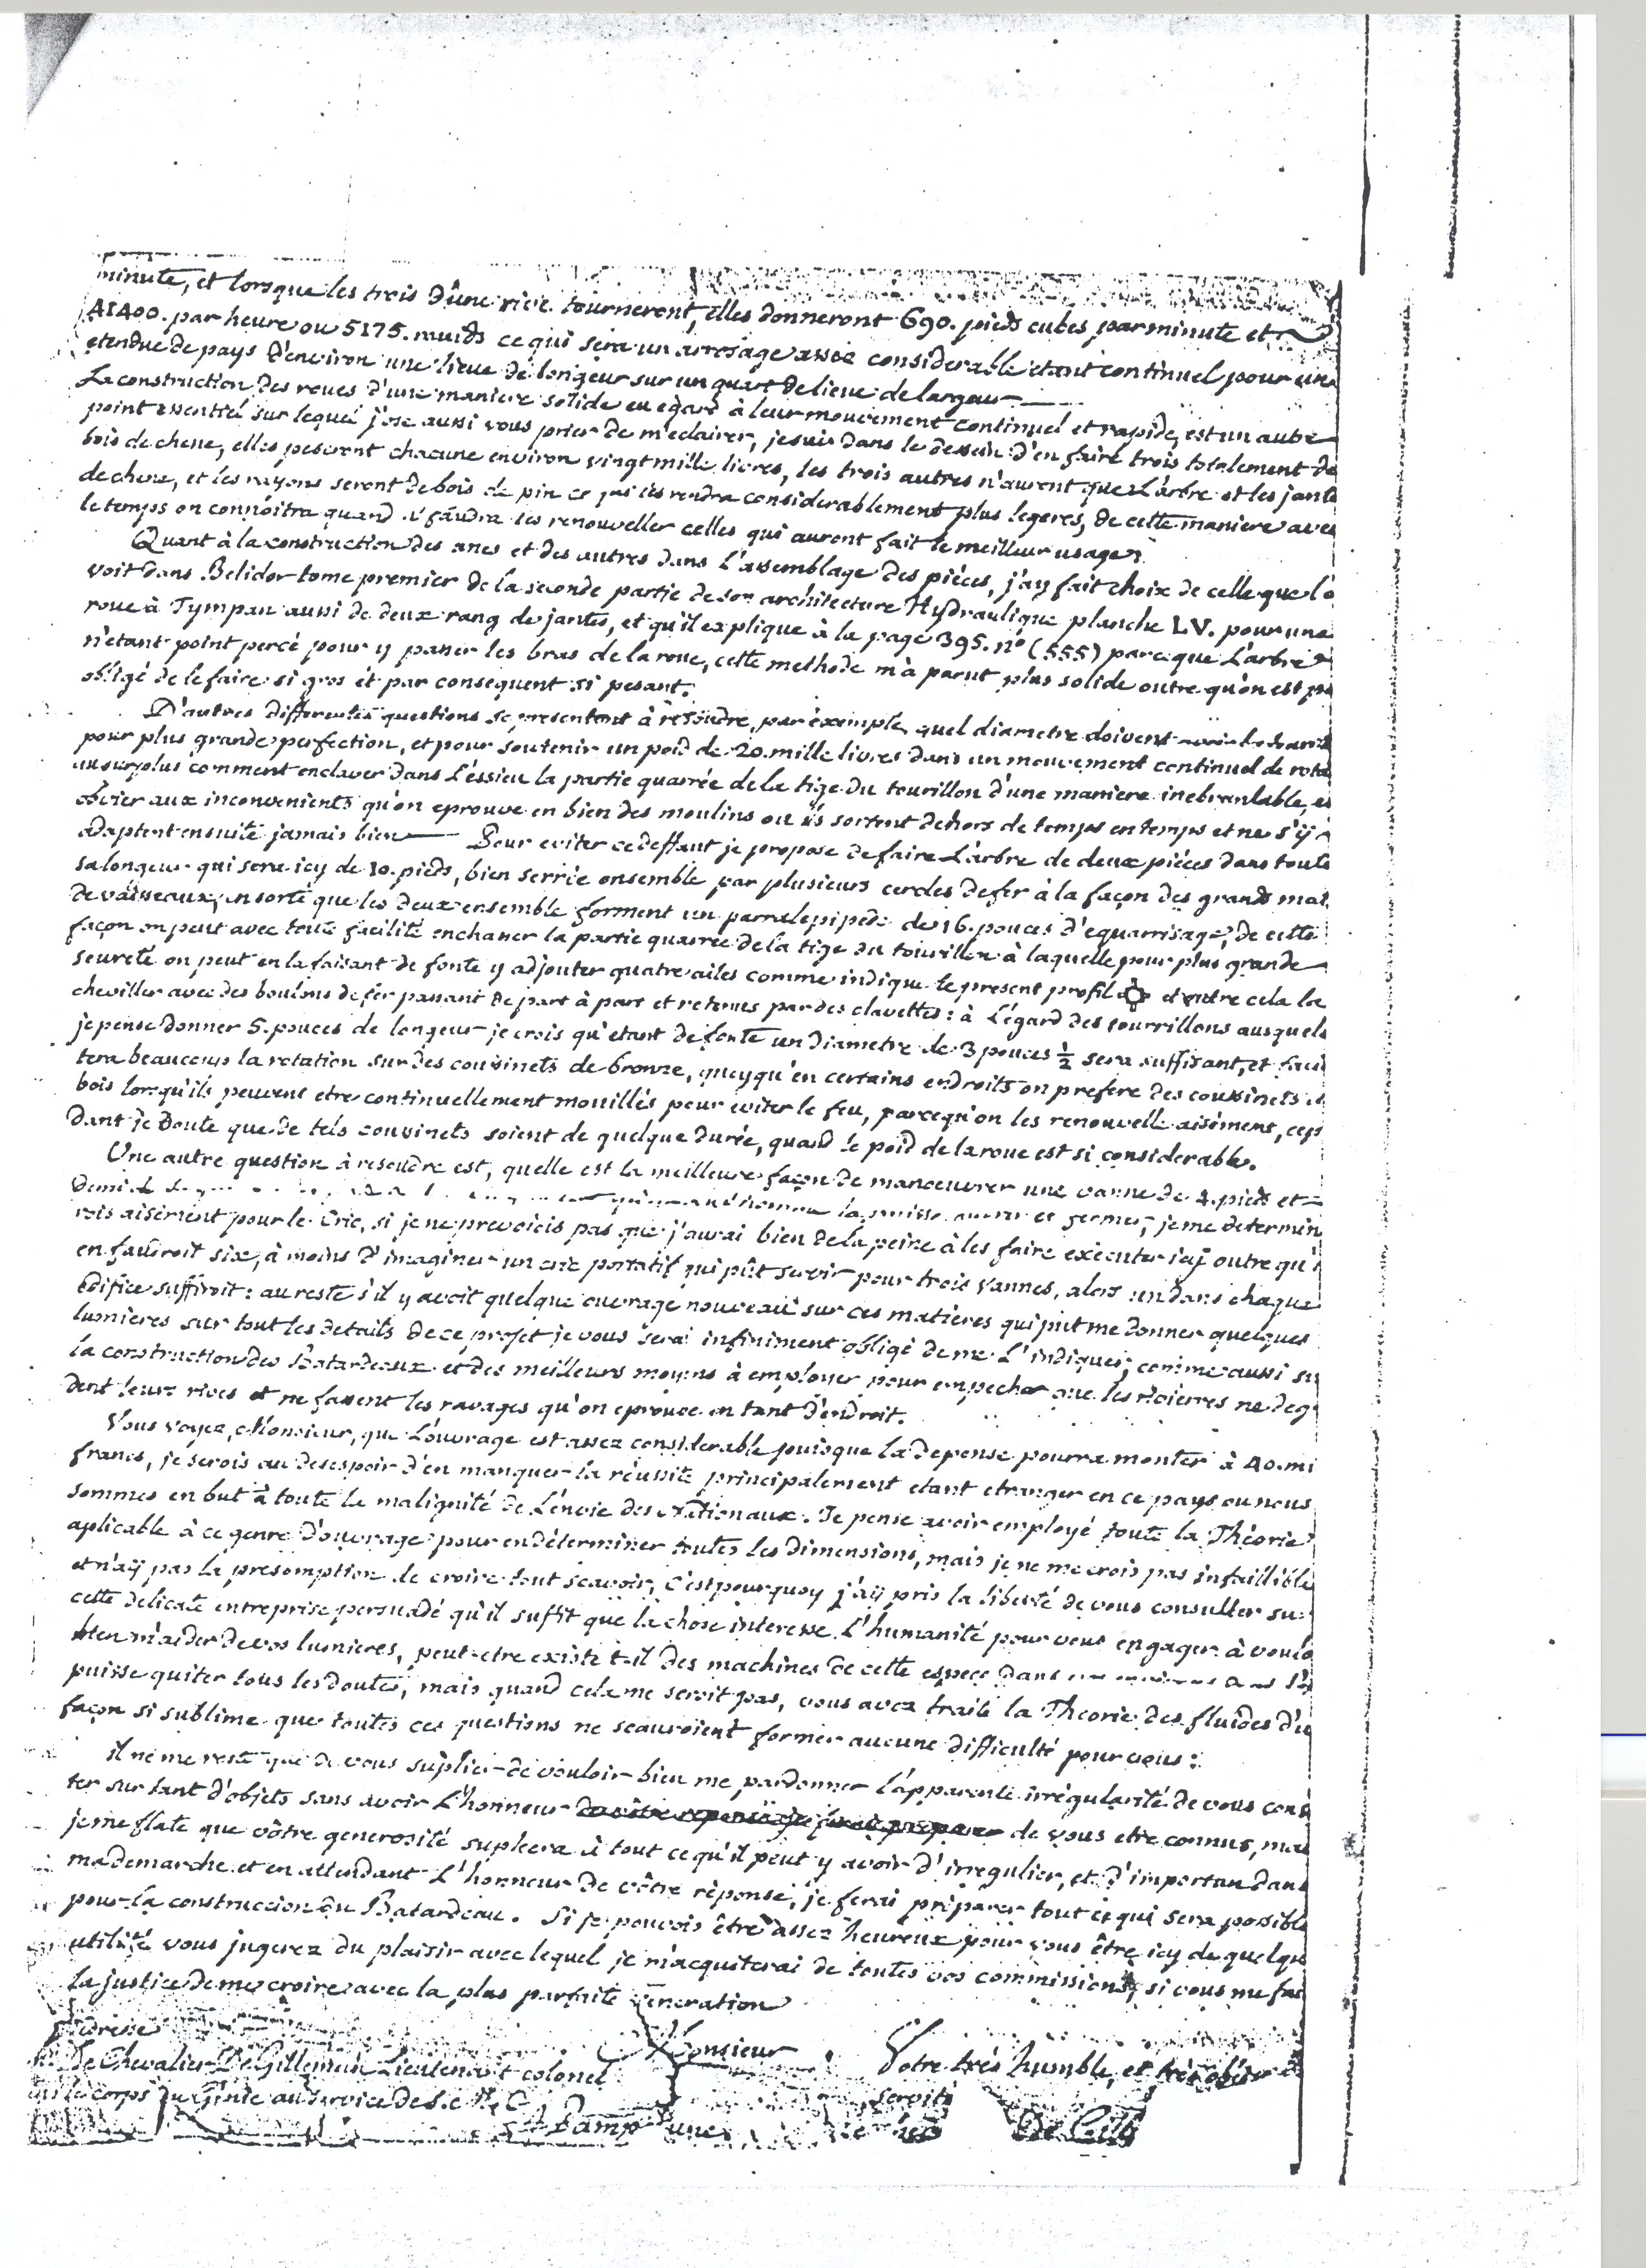 minute, et lorsque les trois d'une rive tourneront, elles donneront 690. pieds cubes par minute et
41400. par heure ou 5175. muids ce qui sera un arrosage assez considerable etant continuel pour une
etendue de pays d'environ une lieue de longeur sur un quart de lieue de largeur
La construction des roues d'une maniere solide eu egard à leur mouvement continuel et rapide, est un autre
point essentiel sur lequel j'ose aussi vous prier de m'eclairer, je suis dans le dessein d'en faire trois totalement de
bois de chene, elles peseront chacune environ vingt mille livres, les trois autres n'auront que L'arbre et les jante
de chene, et les rayons seront de bois de pin ce qui les rendra considerablement plus legeres, de cette maniere avec
le temps on connoitra quand il faudra les renouveller celles qui auront fait le meilleur usage.
Quant à la construction des unes et des autres dans L'assemblage des piéces, j'ay fait choix de celle que l'o
voit dans Belidor tome premier de la seconde partie de son architecture Hydraulique planche LV. pour une
roue à Tympan aussi de deux rang de jantes, et qu'il explique à la page 395. n° (555) parceque L'arbre
n'etant point percé pour y passer les bras de la roue, cette methode m'à parut plus solide outre qu'on est pa
obligé de le faire si gros et par consequent si pesant.
D'autres differentes questions se presentent à resoudre, par éxemple, quel diametre doivent
pour plus grande perfection, et pour soutenir un poid de 20. mille livres dans un mouvement continuel de rota
au surplus comment enclaver dans L'éssieu la partie quarrée de la tige du tourillon d'une maniere inebranlable, et
obvier aux inconvenients qu'on eprouve en bien des moulins ou ils sortent dehors de temps en temps et ne s'ÿ
adaptent ensuite jamais bien — Pour eviter ce deffaut je propose de faire L'arbre de deux piéces dans toute
sa longeur qui sera icy de 10. pieds, bien serrée ensemble par plusieurs cercles de fer à la façon des grands mat
de vaisseaux, en sorte que les deux ensemble forment un parralepipede de 16. pouces d'equarrisage, de cette
façon on peut avec toute facilité enchasser la partie quarrée de la tige du tourillon à laquelle pour plus grande
seureté on peut en la faisant de fonte y adjouter quatre ailes comme indique le present profil et outre cela la
cheviller avec des boulons de fer passant de part à part et retenus par des clavettes: à L'égard des tourrillons ausquels
je pense donner 5. pouces de longeur je crois qu'etant de fonte un diametre de 3 pouces ½ sera suffisant, et faci
tera beaucoup la rotation sur des cousinets de bronze, quoyqu'en certains endroits on prefere des cousinets
bois lorsqu'ils peuvent etre continuellement mouillés pour eviter le feu, parcequ'on les renouvelle aisément, cep
dant je doute que de tels cousinets soient de quelque durée, quand le poid de la roue est si considerable.
Une autre question à resoudre est, quelle est la meilleure façon de manœuvrer une vanne de 4. pieds et
la puisse ouvrir et fermer, je me determin
rois aisément pour le Cric, si je ne prevoiois pas que j'aurai bien de la peine à les faire executer icÿ outre qu'i
en faudroit six, à moins d'imaginer un cric portatif qui pût servir pour trois vannes, alors un dans chaque
edifice suffiroit: au reste s'il y avoit quelque ouvrage nouveau sur ces matieres qui put me donner quelques
lumieres sur tout les details de ce projet je vous serai infiniment obligé de me L'indiquer, comme aussi su
la construction des Batardeaux et des meilleurs moyens à employer pour empecher que les Rivierres ne deg
dent leurs rives et ne fassent les ravages qu'on eprouve en tant d'endroit.
Vous voyez, Monsieur, que L'ouvrage est assez considerable puisque la depense pourra monter à 40. mi
francs, je serois au desespoir d'en manquer la réussite principalement etant etranger en ce pays ou nous
sommes en but à toute la malignité de L'envie des Nationaux. Je pense avoir employé toute la Théorie
aplicable à ce genre d'ouvrage pour en déterminer toutes les dimensions, mais je ne me crois pas infaillible
et n'aÿ pas la presomption de croire tout scavoir, c'est pourquoy j'aÿ pris la liberté de vous consulter su
cette delicate entreprise persuadé qu'il suffit que la chose interesse L'humanité pour vous engager à voulo
bien m'aider de vos lumieres, peut-etre existe t-il des machines de cette espece dans
puisse quiter tous les doutes, mais quand cela me seroit pas, vous avez traité la Theorie des fluides d'u
façon si sublime que toutes ces questions ne scauroient former aucune difficulté pour vous:
il ne me reste que de vous suplier de vouloir bien me pardonner l'apparente irrégularité de vous cons
ter sur tant d'objets sans avoir L'honneur de vous etre connus, mai
je me flate que vôtre generosité supleera à tout ce qu'il peut y avoir d'irregulier, et d'importun dans
ma demarche et en attendant L'honneur de vôtre réponse, je ferai préparer tout ce qui sera possible
pour la construccion du Batardeau. Si je pouvois être assez heureux pour vous être icy de quelqu
utilité vous jugerez du plaisir avec lequel je m'acquiterai de toutes vos commissions, si vous me fai
la justice de me croire avec la plus parfaite veneration
Monsieur
Votre trés humble, et trés obeis
servite
adresse
Le Chevalier De Gillemin Lieutenant colonel
du corps du Génie au Service de S. M. C.
Pampelune
De Gill